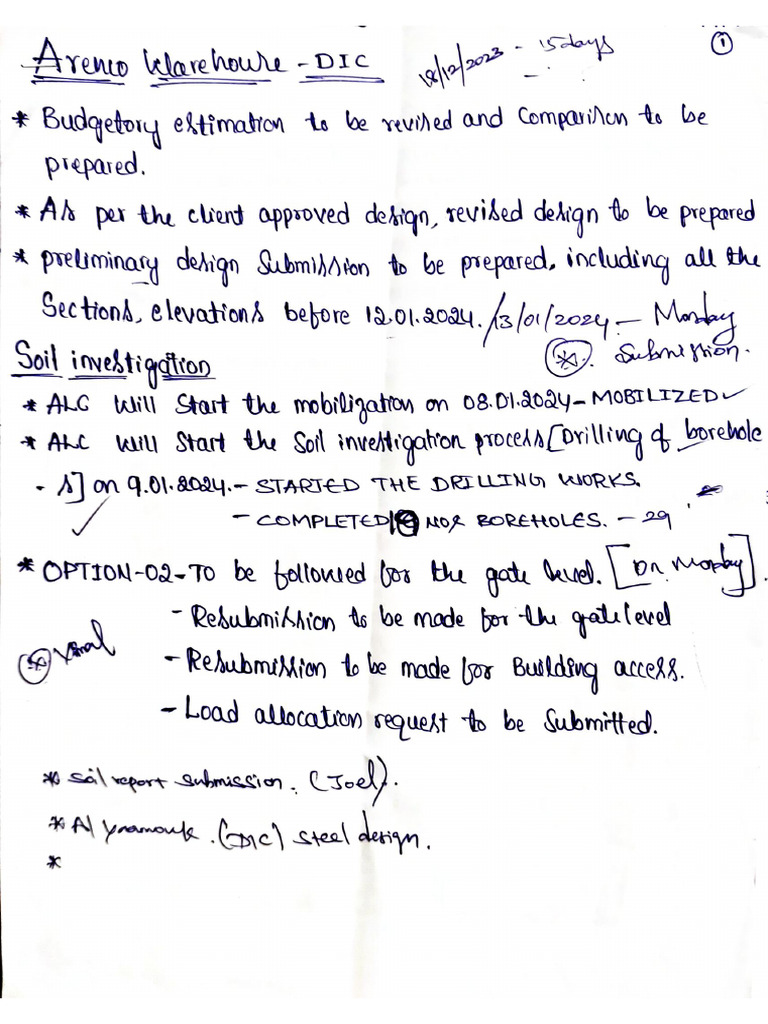 Arenco Warehouse - DIC 18/12/2023 - 15 days ①
* Budgetory estimation to be revised and comparison to be
prepared.
* As per the client approved design, revised design to be prepared
* preliminary design submission to be prepared, including all the
Sections, elevations before 12.01.2024. /3/01/2024 - Monday
Submission.
Soil investigation
* ALC will start the mobilization on 08.01.2024 - MOBILIZED ✓
* ALC will start the soil investigation process [Drilling of borehole
- s] on 9.01.2024. - STARTED THE DRILLING WORKS.
✓ - COMPLETED NOS BOREHOLES. - 29
* OPTION-02 - TO be followed for the gate level. [On Monday].
- Resubmission to be made for the gate level
- Resubmission to be made for Building access.
- Load allocation request to be submitted.
* Soil report submission. (Joel).
* Al (DIC) steel design.
*